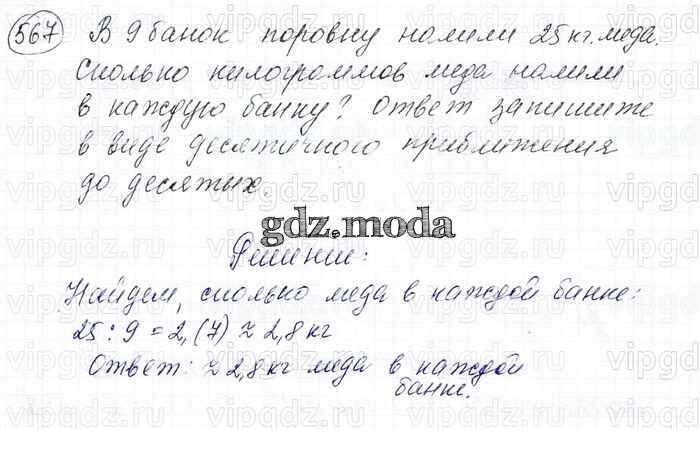 567 В 9 банок поровну налили 25 кг. меда.
Сколько килограммов меда налили
в каждую банку? Ответ запишите
в виде десятичного приближения
до десятых.
gdz.moda
Решение:
Найдем, сколько меда в каждой банке:
25 : 9 = 2,(7) ≈ 2,8 кг
Ответ: ≈ 2,8 кг меда в каждой
банке.
vipgdz.ru